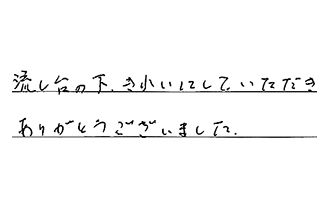 流し台の下、きれいにしていただき
ありがとうございました。